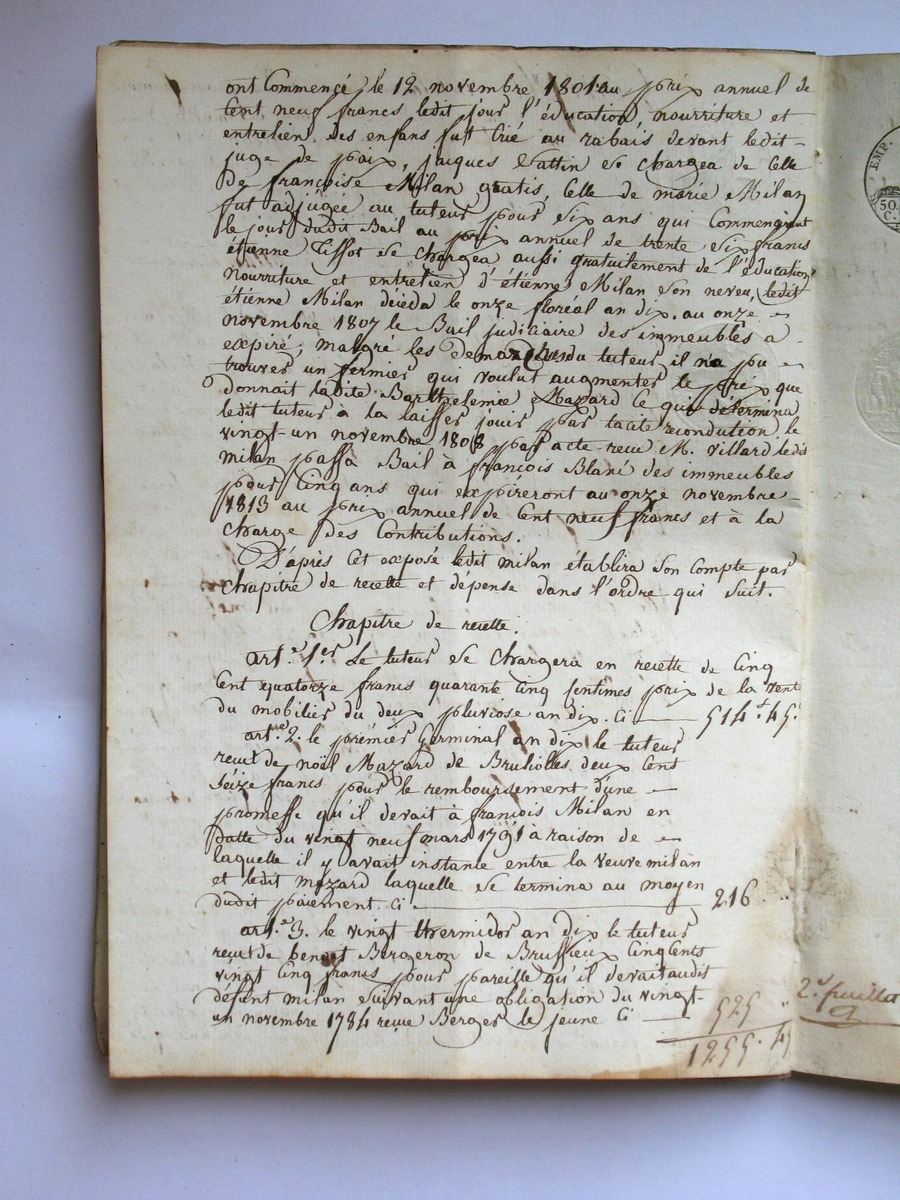 ont Commençé le 12 novembre 1801 au prix annuel de
Cent neuf francs ledit jour l'éducation, nourriture et
entretien des enfans fut Crié au rabais devant ledit
juge de paix, jaques Vattin se chargea de Celle
De françoise Milan gratis, Celle de marie Milan
fut adjugée au tuteur pour six ans qui Commençirent
le jour dudit Bail au prix annuel de trente six francs
étienne Tissot se chargea aussi gratuitement de l'éducation
nourriture et entretien d'étienne Milan son neveu, ledit
étienne Milan décéda le onze floréal an dix. au onze
novembre 1807 le Bail judiciaire des immeubles a
expiré; malgré les demarches du tuteur il n'a pu
trouver un fermier qui voulut augmenter le prix que
donnait ladite Barthelemie Mazard Ce qui détermina
ledit tuteur à la laisser jouir par tacite recondution. le
vingt-un novembre 1808 par acte reçu M. Villard ledit
milan passa Bail à françois Blanc des immeubles
pour Cinq ans qui expireront au onze novembre
1813 au prix annuel de Cent neuf francs et à la
Charge des Contributions.
D'après Cet exposé ledit milan établira son Compte par
Chapitre de recette et dépense dans l'ordre qui suit.
Chapitre de recette.
art.e 1.er Le tuteur se Chargera en recette de Cinq
Cent quatorze francs quarante Cinq Centimes prix de la vente
du mobilier du deux pluviose an dix. Ci 514.f 45.c
art.e 2. le prémier Germinal an dix le tuteur
reçut de noël Mazard de Brulioles deux Cent
Seize francs pour le remboursement d'une
promesse qu'il devait à françois Milan en
datte du vingt neuf mars 1791 à raison de
laquelle il y avait instance entre la veuve milan
et ledit mazard laquelle se termina au moyen
dudit paiement. Ci 216 "
art.e 3. le vingt thermidor an dix le tuteur
reçut de benoit Bergeron de Brussieux Cinq Cents
vingt Cinq francs pour pareille qu'il devait audit
défunt milan suivant une obligation du vingt-
un novembre 1784 reçue Berger le jeune Ci
525 "
1255. 45
2.e feuillet
EMP.
50.
C.